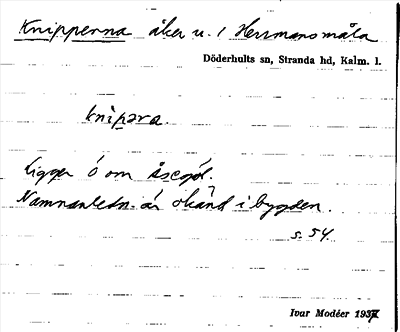 Knipperna åker u. 1 Herrmansmåla
Döderhults sn, Stranda hd, Kalm. l.
knìpəra.
Ligger ö om
Namnanledn. är okänd i bygden.
s. 54.
Ivar Modéer 1937